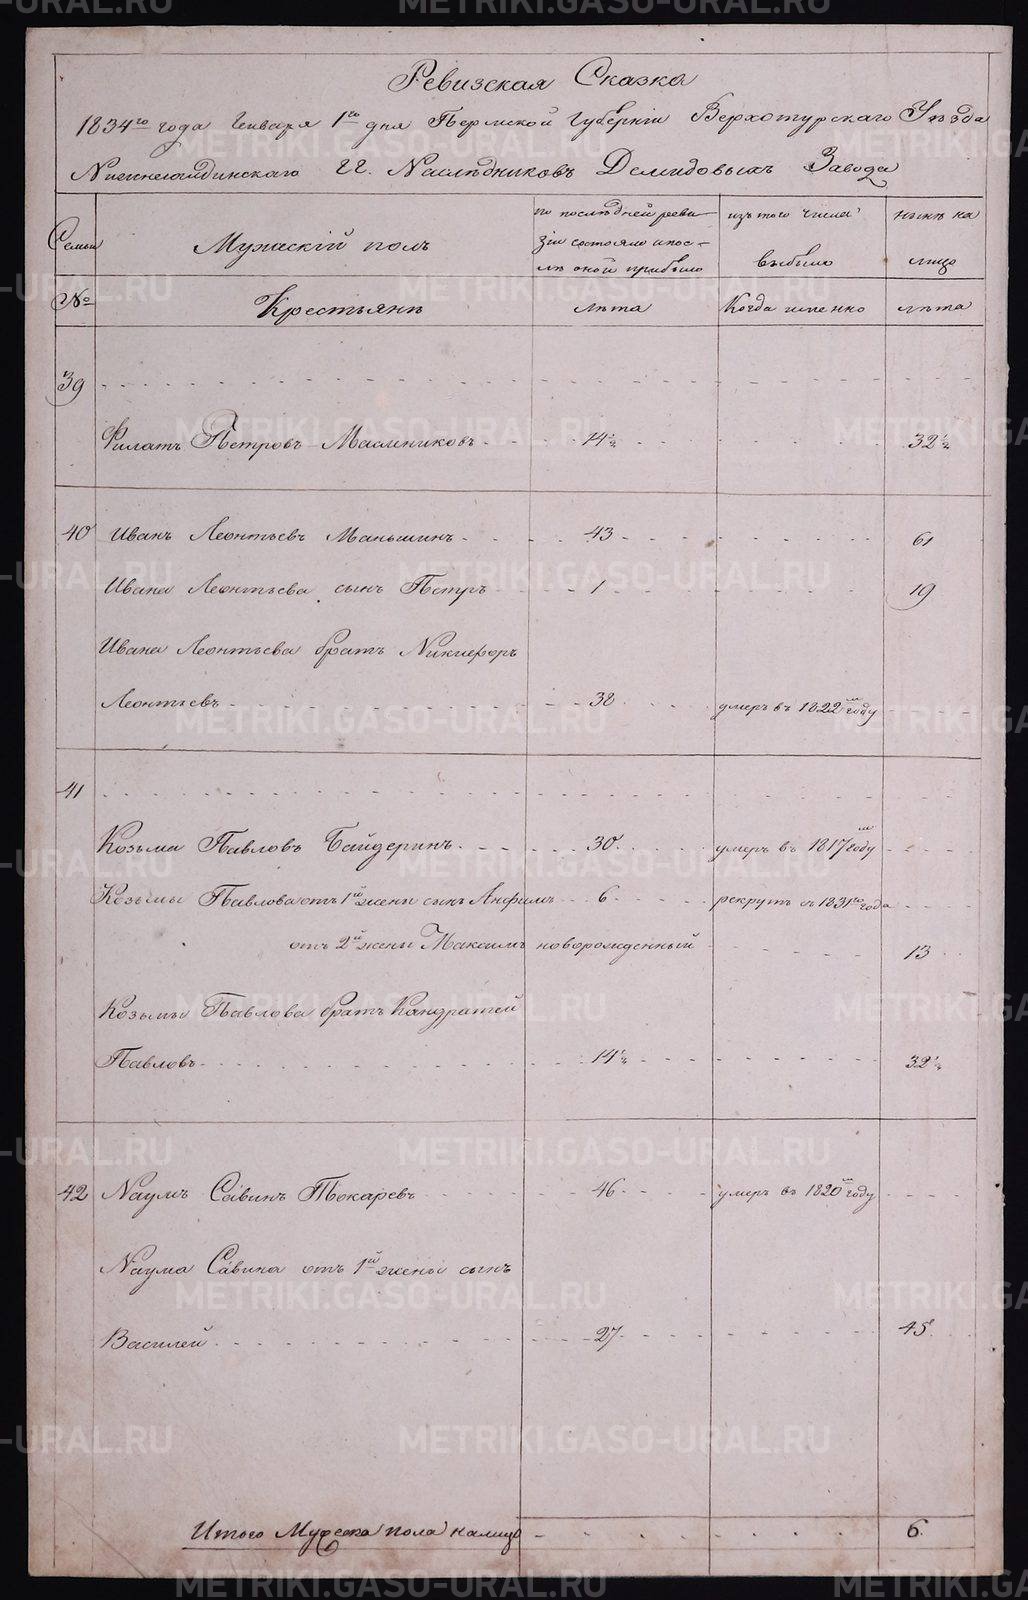 Ревизская Сказка
1834го года Генваря 1го дня Пермской Губернiи Верхотурскаго Уѣзда
Нижнесалдинскаго Г.Г. Наслѣдниковъ Демидовыхъ Завода
Семьи Мужескiй полъ по послѣдней реви- изъ того числа ныне на
зiи состояло и пос-
лѣ оной прибыло выбыло лицо
№ Крестьянъ лѣта Когда именно лѣта
39
Филатъ Петровъ Масленниковъ 14½ 32½
40 Иванъ Леонтьевъ Маньшинъ 43 61
Ивана Леонтьева сынъ Петръ 1 19
Ивана Леонтьева братъ Никифоръ
Леонтьевъ 38 умеръ въ 1822м году
41
Козьма Павловъ Байдеринъ 30 умеръ въ 1817м году
Козьмы Павлова отъ 1й жены сынъ Анфимъ 6 рекрутъ съ 1831го года
отъ 2й жены Максимъ новорожденный 13
Козьмы Павлова братъ Кандратей
Павловъ 14½ 32½
42 Наумъ Савинъ Токаревъ 46 умеръ въ 1820м году
Наума Савина отъ 1й жены сынъ
Василей 27 45
Итого Мужеска пола налицо 6
METRIKI.GASO-URAL.RU